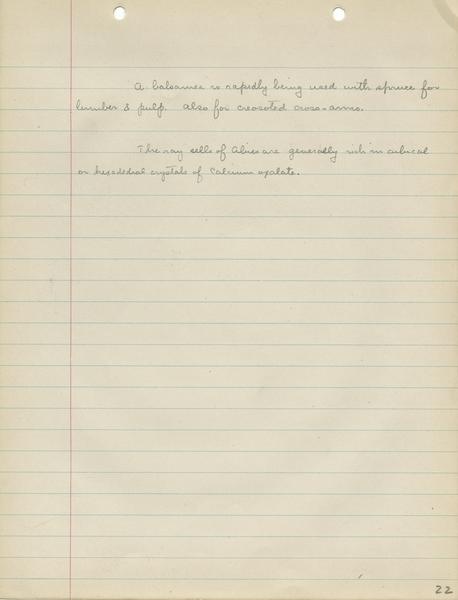 A balsamea is rapidly being used with spruce for
lumber & pulp. also for creosoted cross-arms.
The ray cells of Abies are generally rich in cubical
or hexedral crystals of Calcium oxalate.
22